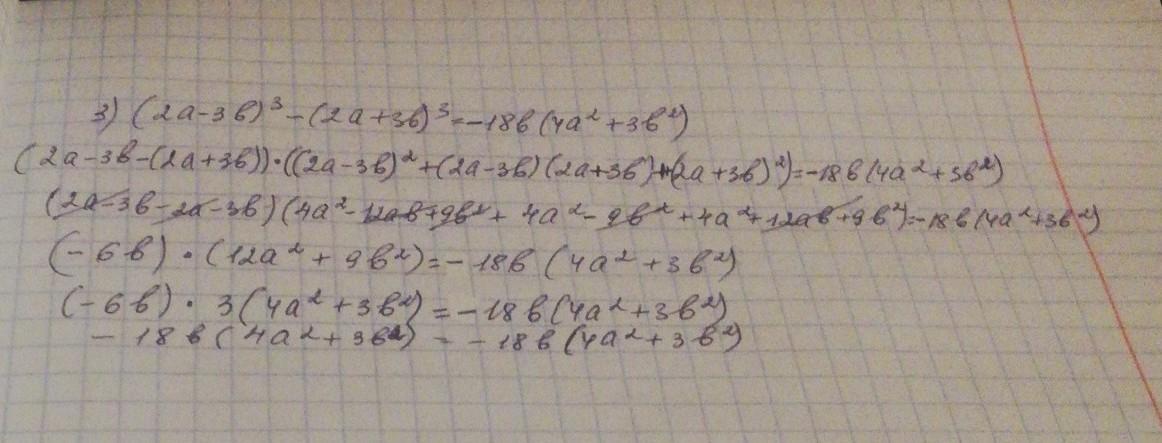 3) (2a-3в)³-(2a+3в)³=-18в(4a²+3в²)
(2a-3в-(2a+3в))·((2a-3в)²+(2a-3в)(2a+3в)+(2a+3в)²)=-18в(4a²+3в²)
(2a-3в-2a-3в)(4a²-12aв+9в²+4a²-9в²+4a²+12aв+9в²)=-18в(4a²+3в²)
(-6в)·(12a²+9в²)=-18в(4a²+3в²)
(-6в)·3(4a²+3в²)=-18в(4a²+3в²)
-18в(4a²+3в²)=-18в(4a²+3в²)